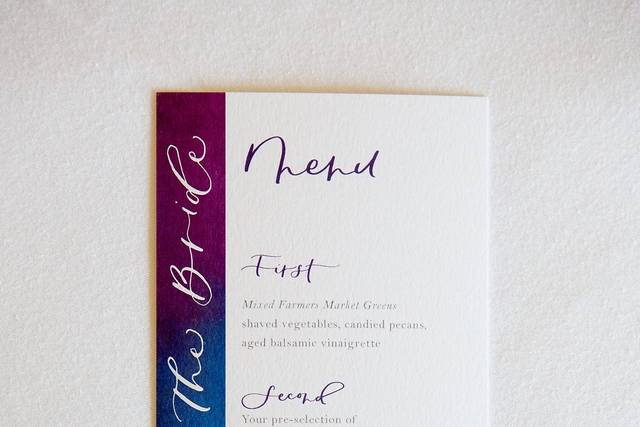 The Bride
Menu
First
Mixed Farmers Market Greens
shaved vegetables, candied pecans,
aged balsamic vinaigrette
Second
Your pre-selection of